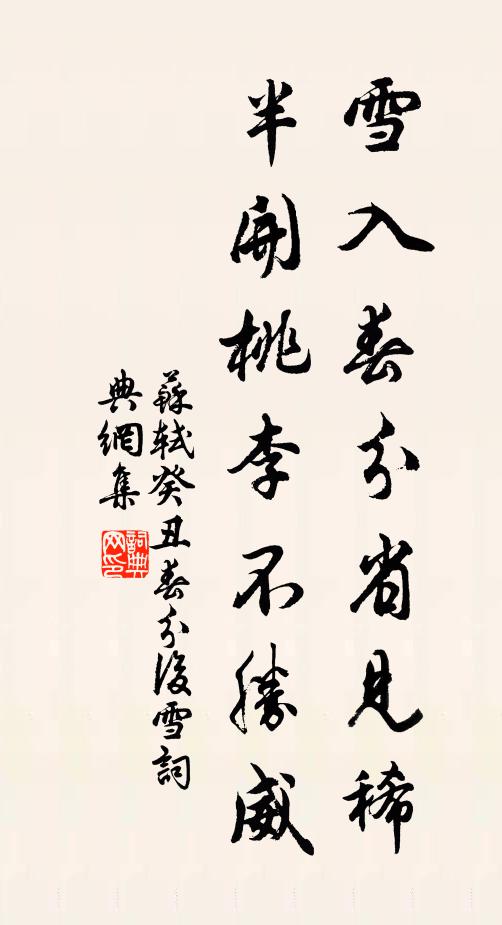 雪入春分省見稀
半開桃李不勝威
蘇軾癸丑春分後雪詞
典網集
詞典網印